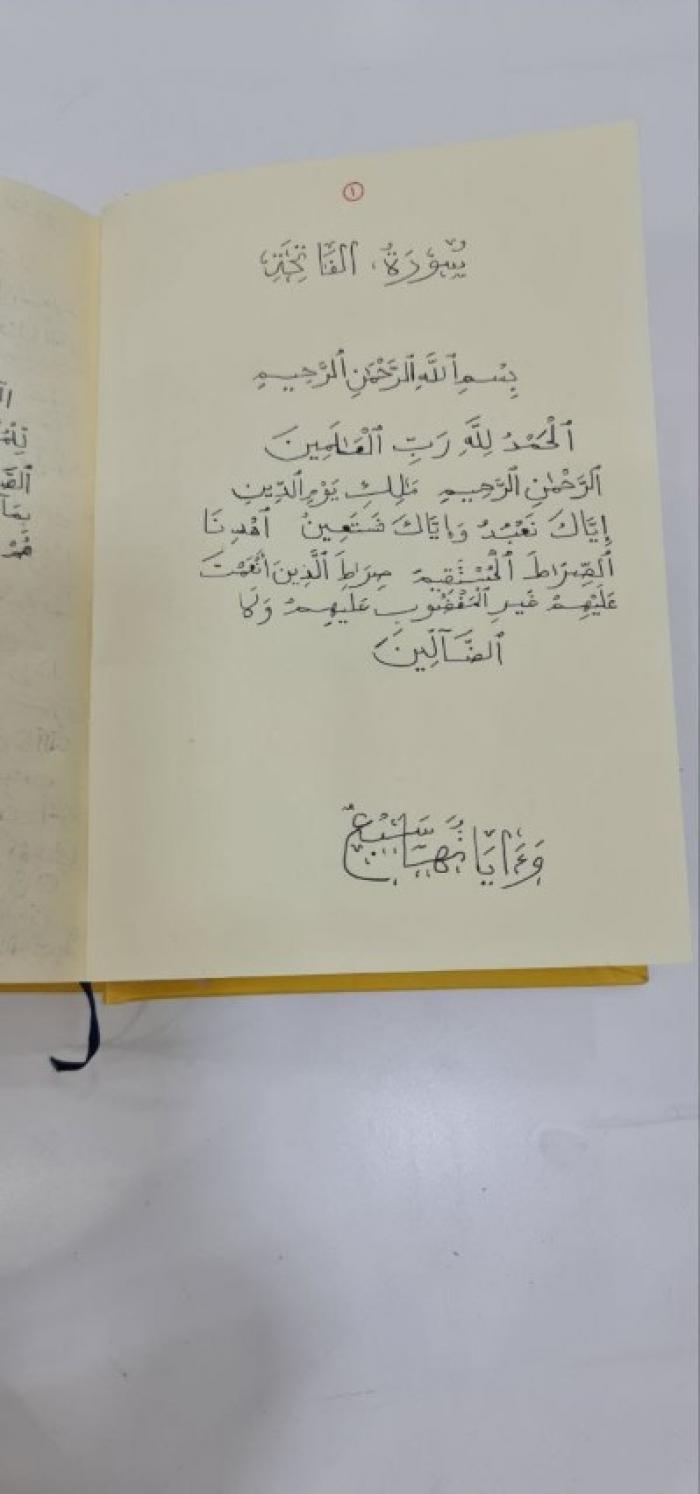 ١
سُوْرَةُ الفَاتِحَةِ
بِسْمِ ٱللَّهِ ٱلرَّحْمَٰنِ ٱلرَّحِيمِ
ٱلْحَمْدُ لِلَّهِ رَبِّ ٱلْعَٰلَمِينَ
ٱلرَّحْمَٰنِ ٱلرَّحِيمِ مَٰلِكِ يَوْمِ ٱلدِّينِ
إِيَّاكَ نَعْبُدُ وَإِيَّاكَ نَسْتَعِينُ ٱهْدِنَا
ٱلصِّرَاطَ ٱلْمُسْتَقِيمَ صِرَاطَ ٱلَّذِينَ أَنْعَمْتَ
عَلَيْهِمْ غَيْرِ ٱلْمَغْضُوبِ عَلَيْهِمْ وَلَا
ٱلضَّآلِّينَ
وَءَايَاتُهَا سَبْعٌ